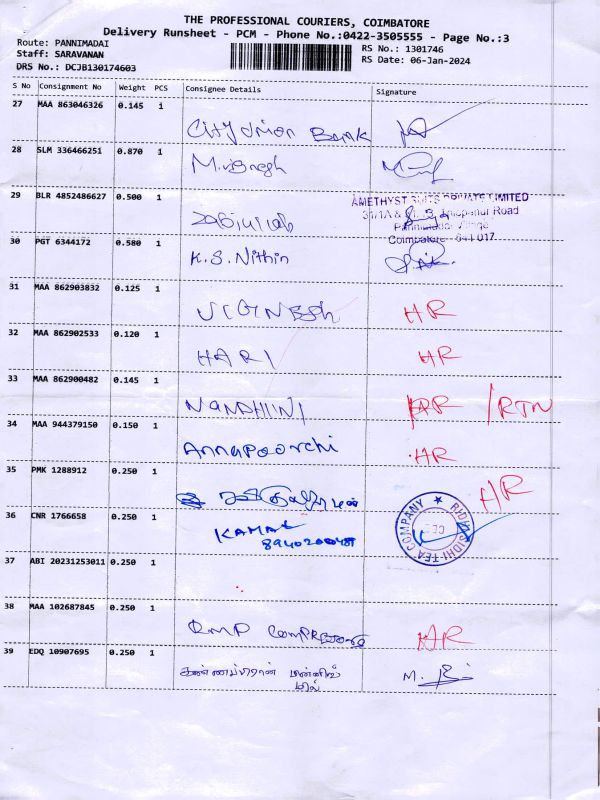 THE PROFESSIONAL COURIERS, COIMBATORE
Delivery Runsheet - PCM - Phone No.:0422-3505555 - Page No.:3
Route: PANNIMADAI
Staff: SARAVANAN
DRS No.: DCJB130174603
RS No.: 1301746
RS Date: 06-Jan-2024
S No Consignment No Weight PCS Consignee Details Signature
27 MAA 863046326 0.145 1
City Union Bank
28 SLM 336466251 0.870 1
M.vignesh
29 BLR 4852486627 0.500 1
AMETHYST SUITS PRIVATE LIMITED
Road
Coimbatore - 641 017
30 PGT 6344172 0.580 1
K.S.Nithin
31 MAA 862903832 0.125 1
VIGNESh HR
32 MAA 862902533 0.120 1
HARI HR
33 MAA 862900482 0.145 1
NANDHINI HR /RTN
34 MAA 944379150 0.150 1
Annapoorchi HR
35 PMK 1288912 0.250 1
HR
36 CNR 1766658 0.250 1
KAMAL
RIDHI SIDHI TEA COMPANY ★
CBE
37 ABI 20231253011 0.250 1
38 MAA 102687845 0.250 1
HR
39 EDQ 10907695 0.250 1
மில்
M.